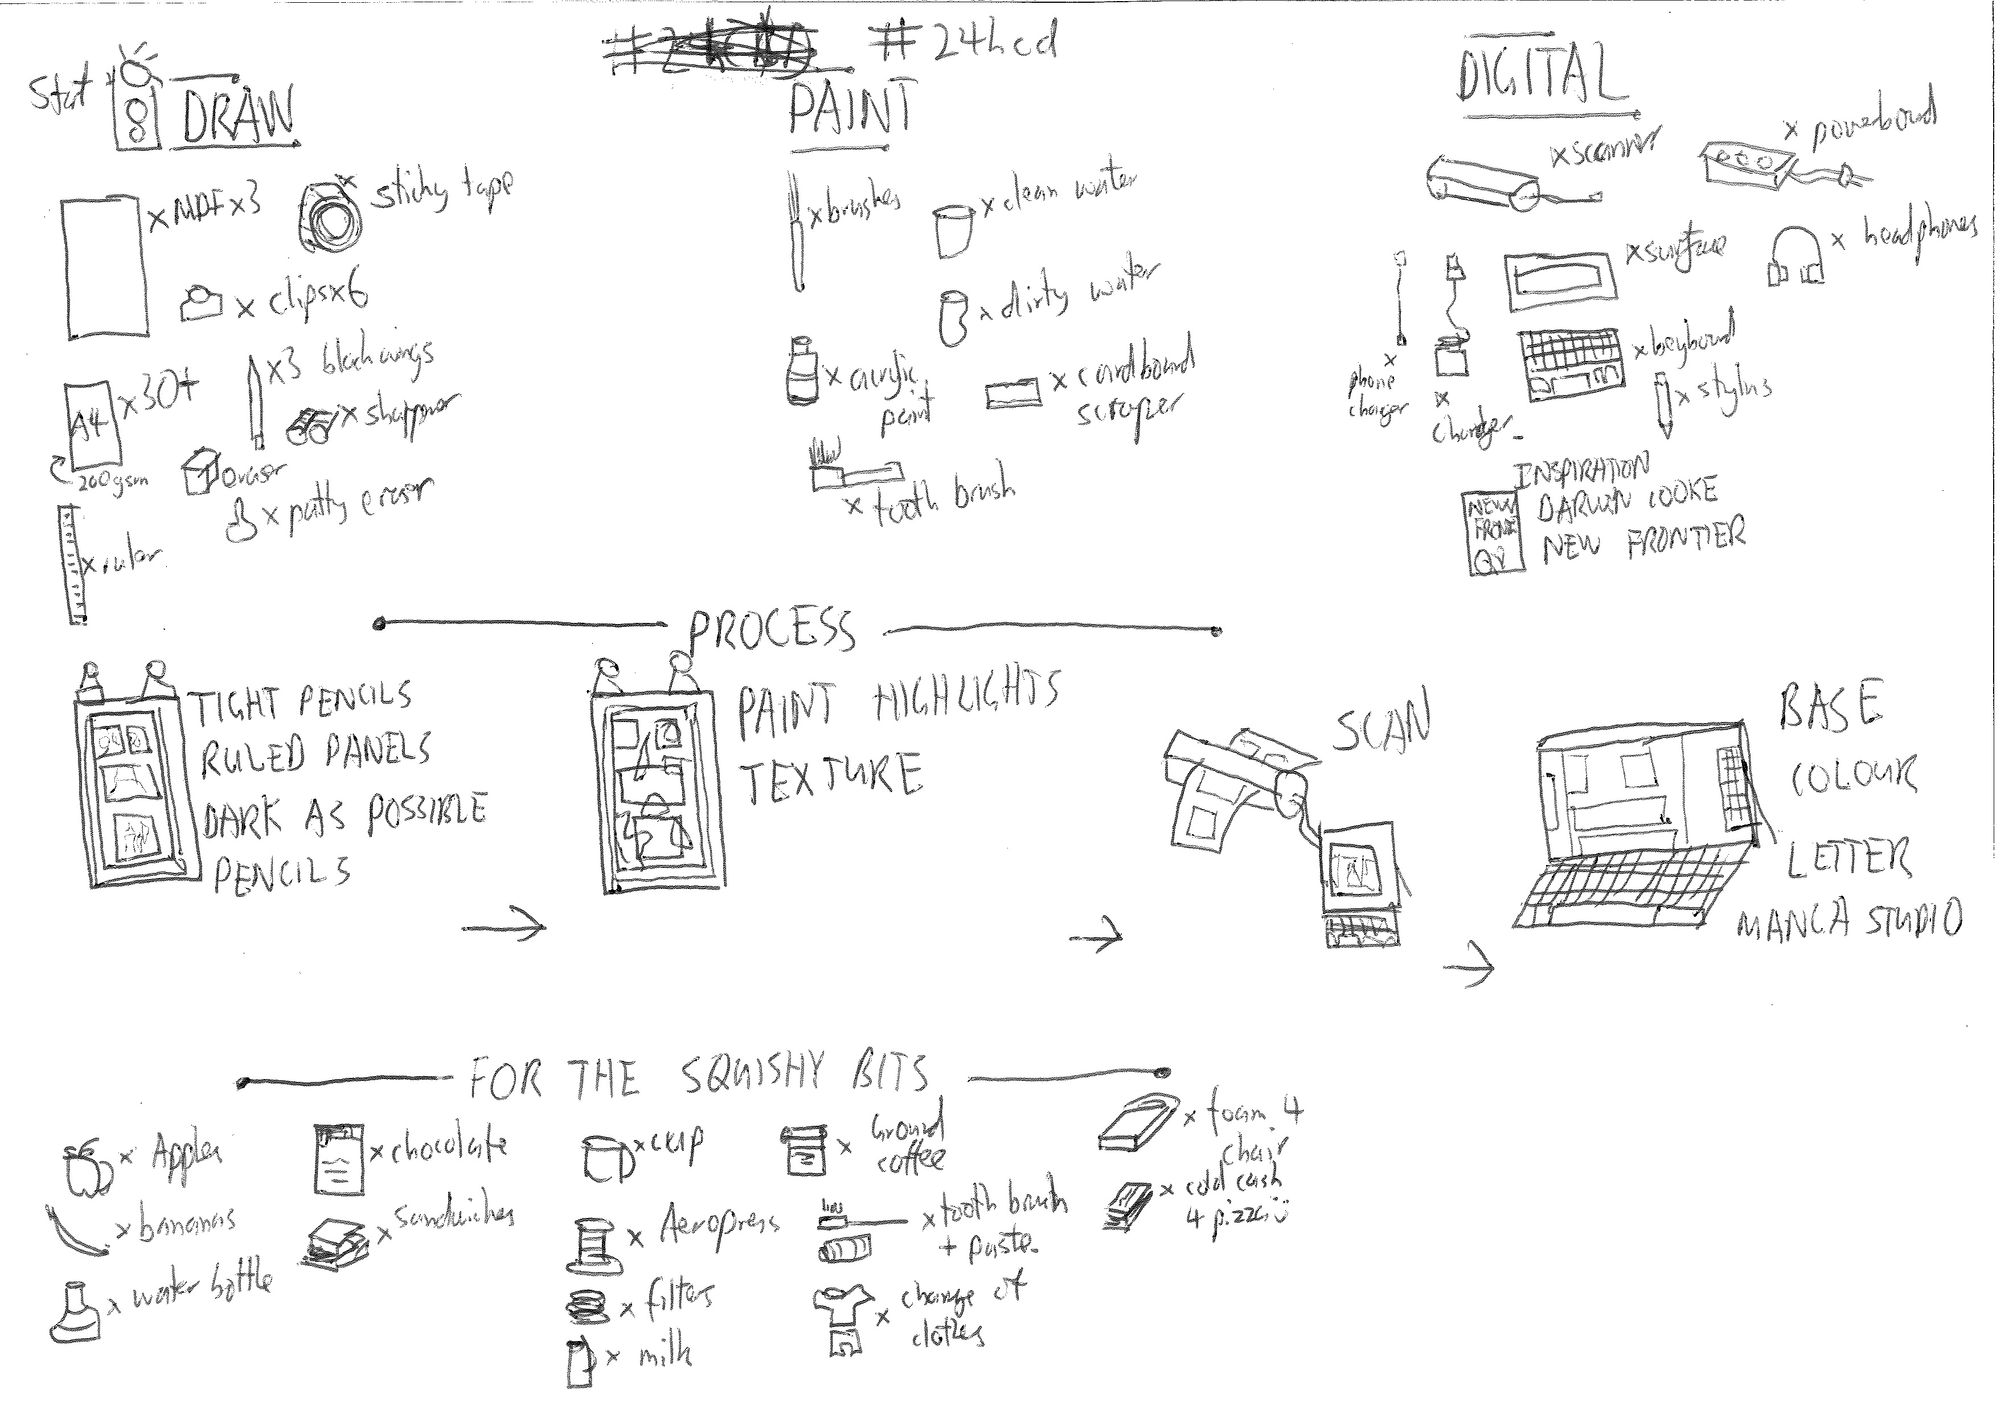 #24hcd
Start
DRAW
x MDF x3
x sticky tape
x clips x6
A4
x30+
200gsm
x3 blackwings
x sharpner
eraser
x putty eraser
x ruler
PAINT
x brushes
x clean water
x dirty water
x acrylic
paint
x cardboard
scraper
x tooth brush
DIGITAL
x scanner
x powerboard
x surface
x headphones
x
phone
charger
x
charger
x keyboard
x stylus
INSPIRATION
DARWYN COOKE
NEW FRONTIER
NEW
FRONT
PROCESS
TIGHT PENCILS
RULED PANELS
DARK AS POSSIBLE
PENCILS
PAINT HIGHLIGHTS
TEXTURE
SCAN
BASE
COLOUR
LETTER
MANGA STUDIO
FOR THE SQUISHY BITS
x Apples
x bananas
x water bottle
x chocolate
x sandwiches
x cup
x Aeropress
x filters
x milk
x Ground
coffee
x tooth brush
+ paste
x change of
clothes
x foam 4
chair
x cold cash
4 pizza